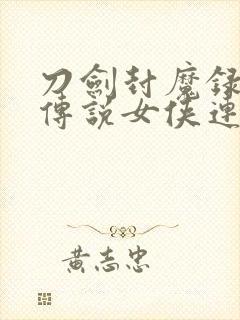 刀劍封魔錄
傳說女俠連
黃志忠